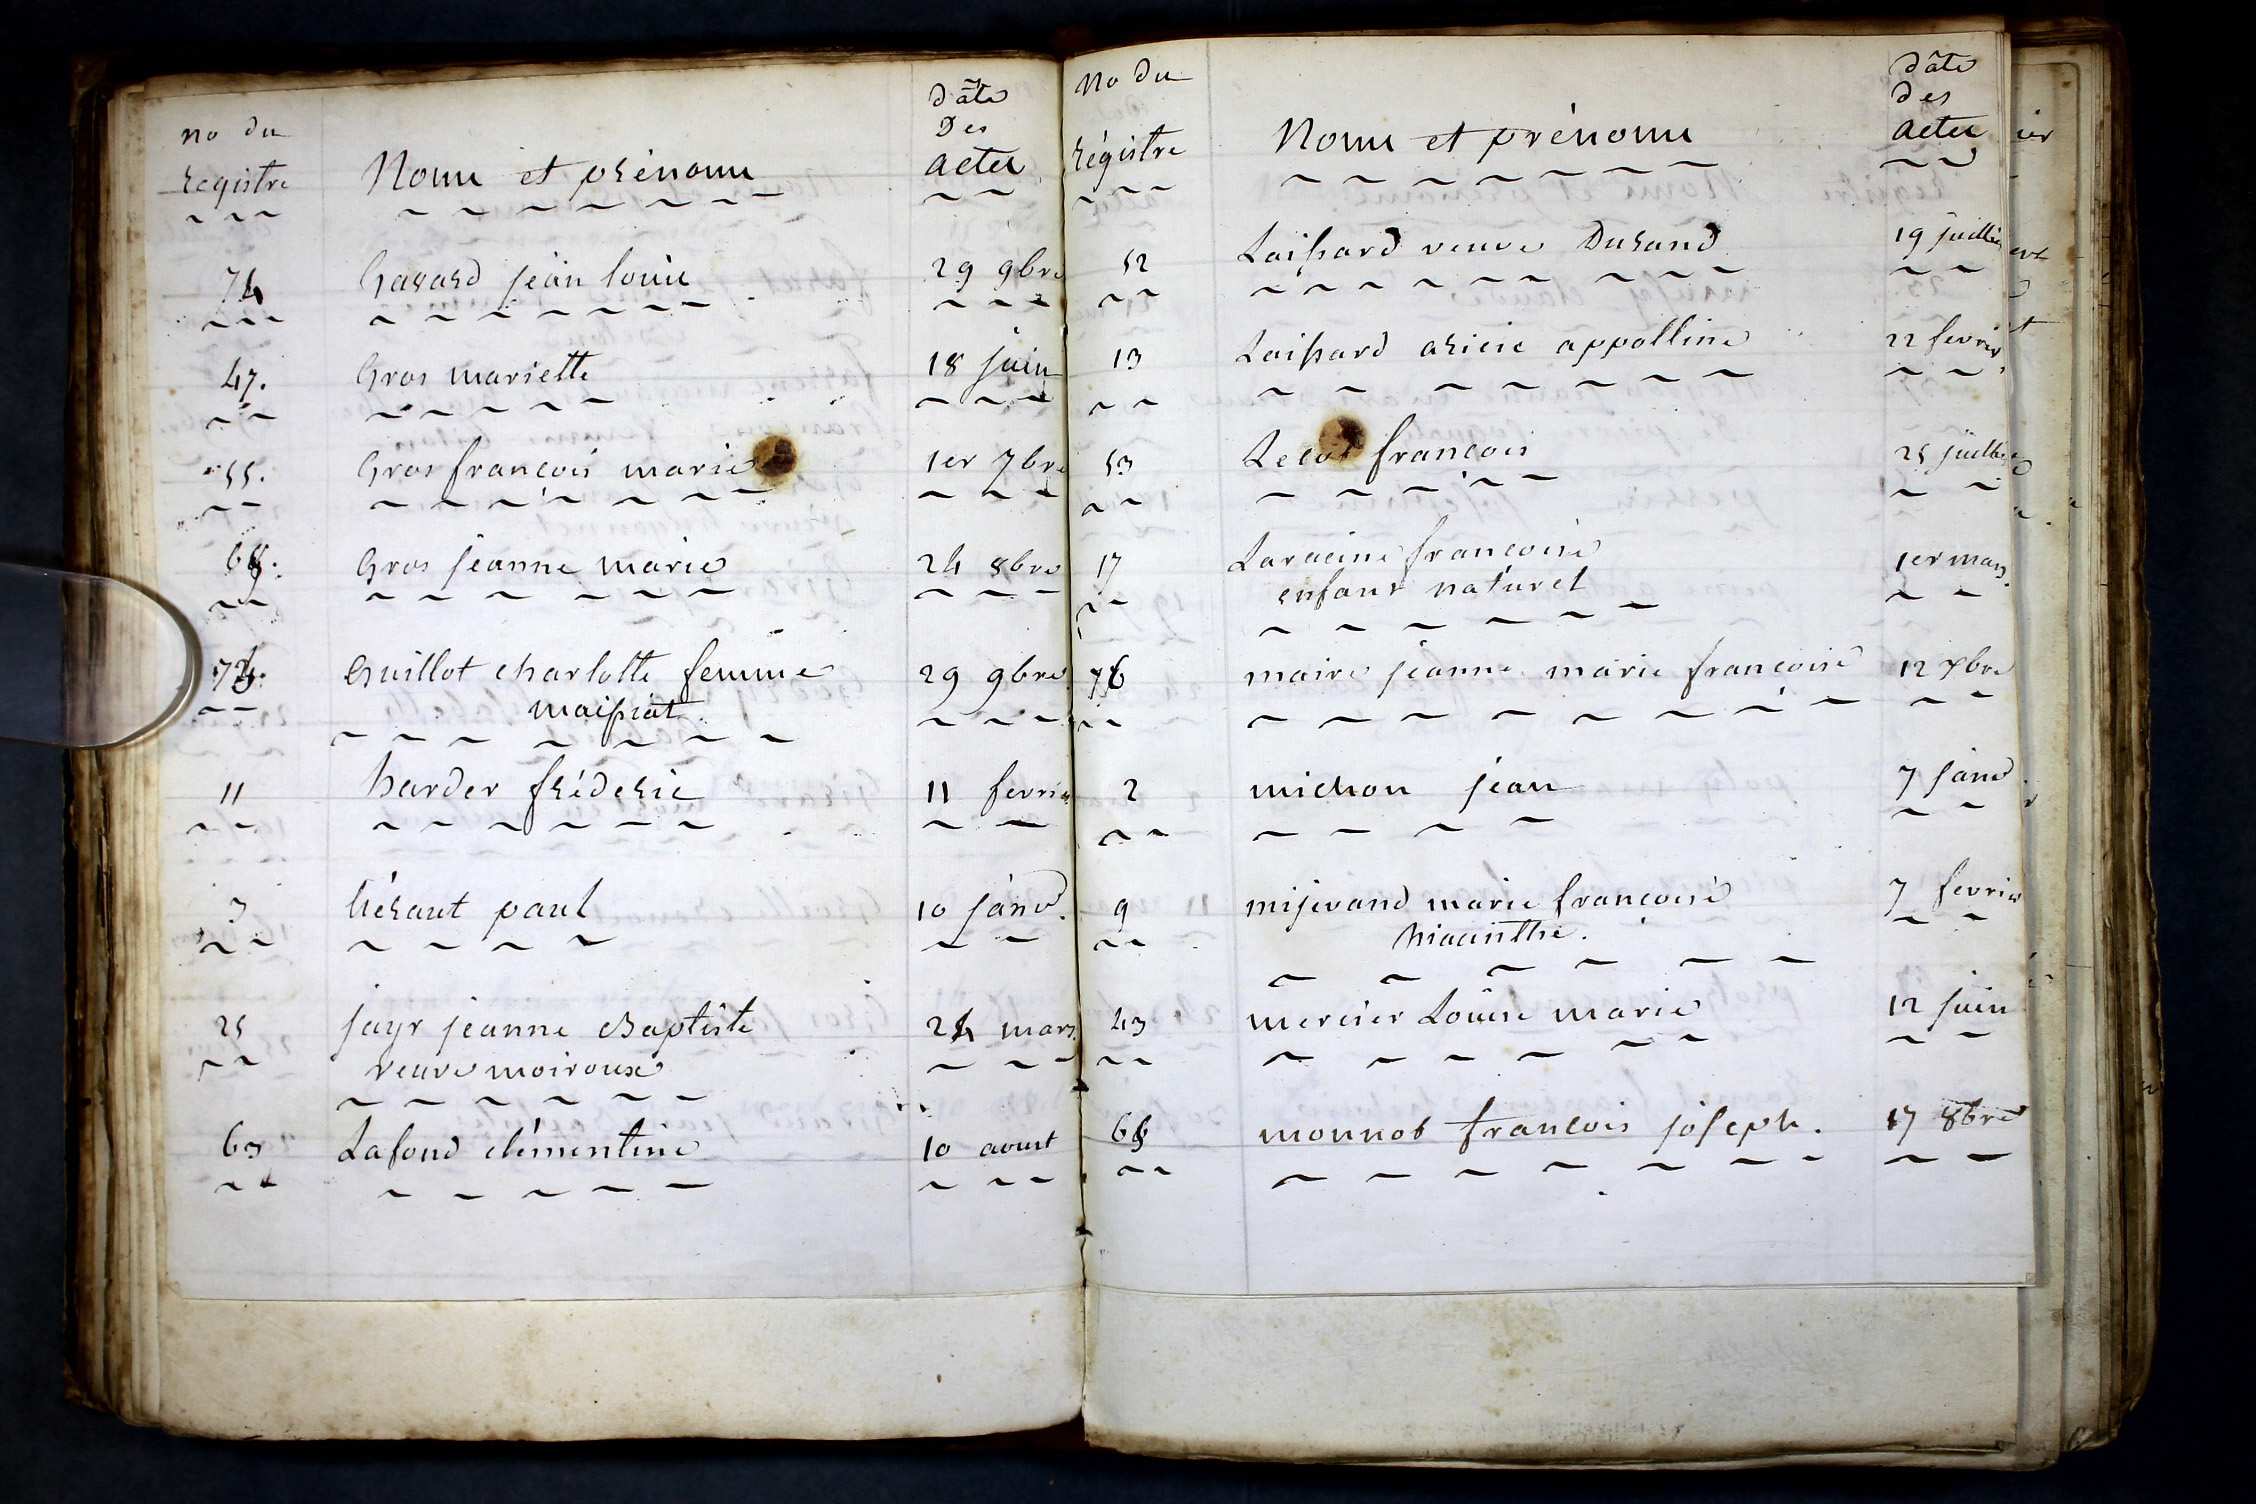 no du
registre
Noms et prénoms
dâte
Des
actes
74 Gavard jean louis 29 9bre
47. Gros mariette 18 juin
55. Gros francois marie 1er 7bre
Gros jeanne marie 24 8bre
Guillot charlotte femme 29 9bre
maissiat
11 harder fréderic 11 fevrier
3 hérant paul 10 janv.
25 jayr jeanne Baptiste 24 mars
veuve moiroux
63 Lafond clémentine 10 aoust
No du
régistre
Noms et prénoms
dâte
des
actes
52 Laissard veuve Durand 19 juillet
13 Laissard aricie appolline 22 fevrier
53 Lecot francois 25 juillet
17 Laracine francoise 1er mars.
enfant naturel
76 maire jeanne marie francoise 12 xbre
2 michon jean 7 janv
9 mijerand marie francoise 7 fevrier
hiacinthe.
43 mercier Louise marie 12 juin
monnot francois joseph. 17 8bre